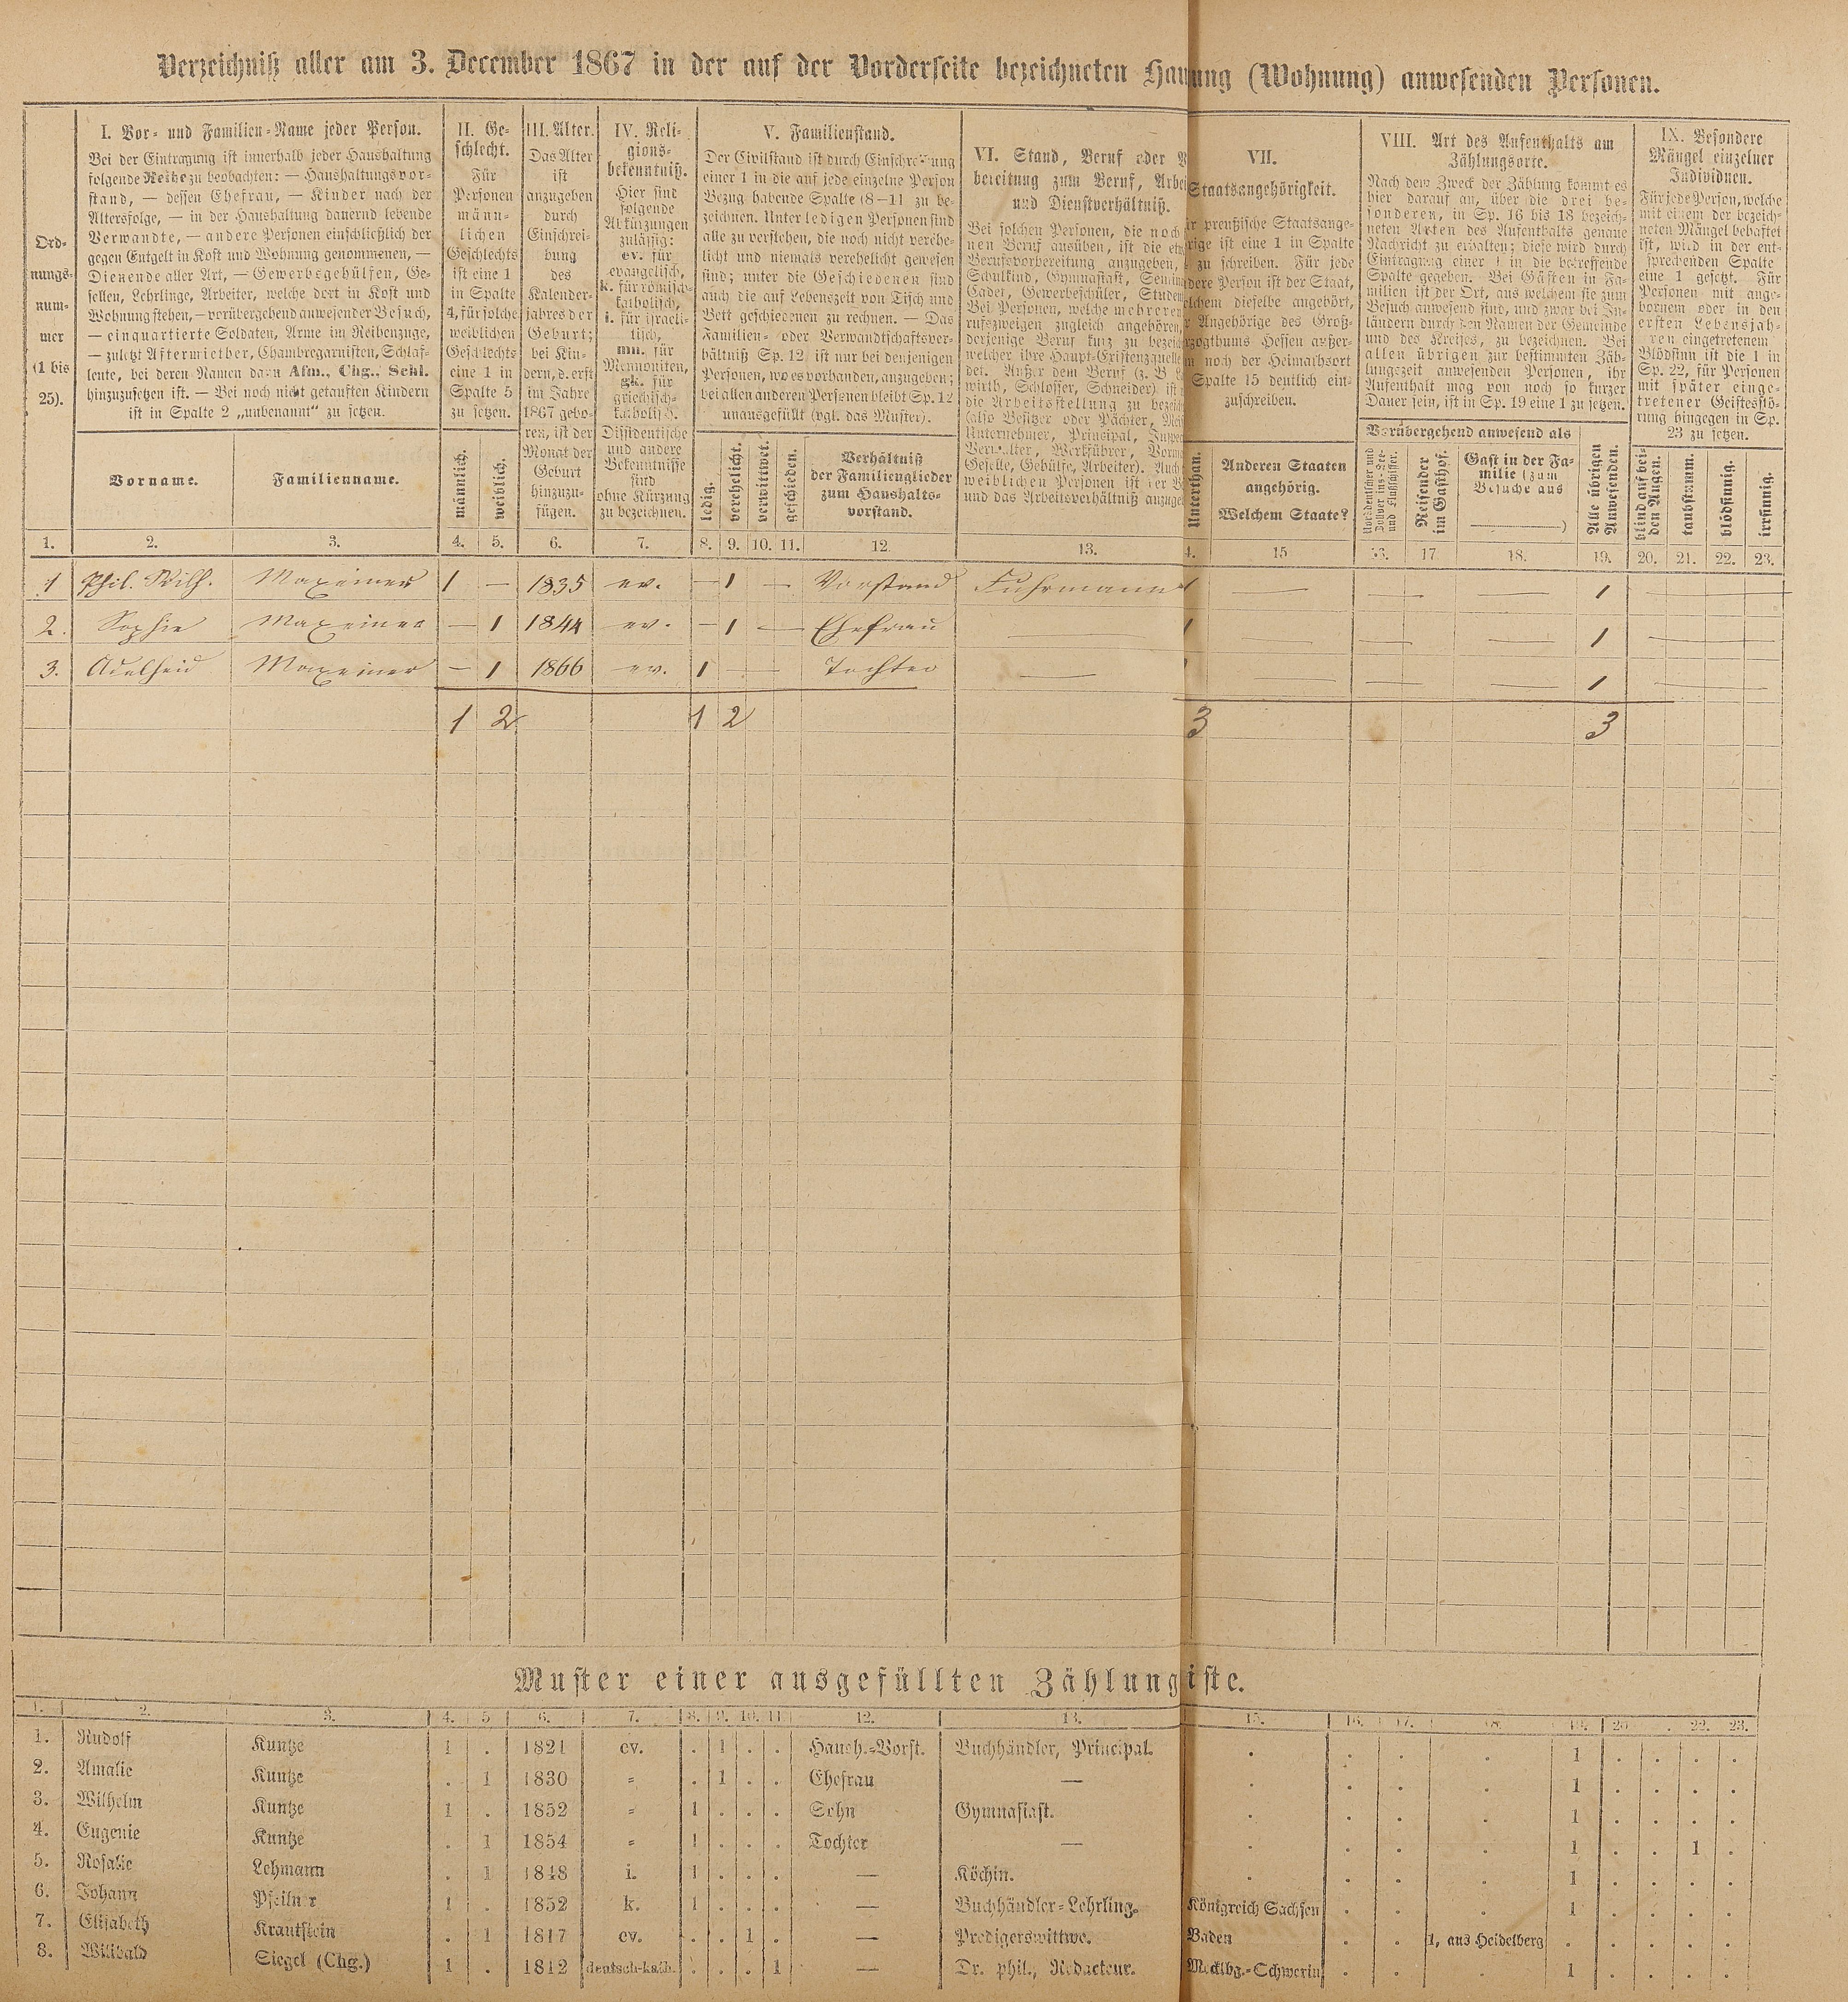 Verzeichniß aller am 3. December 1867 in der auf der Vorderseite bezeichneten Hau ung (Wohnung) anwesenden Personen.
Ord-
nungs-
num-
mer
(1 bis
25).
I. Vor- und Familien-Name jeder Person.
Bei der Eintragung ist innerhalb jeder Haushaltung
folgende Reihe zu beobachten: — Haushaltungsvor-
stand, — dessen Ehefrau, — Kinder nach der
Altersfolge, — in der Haushaltung dauernd lebende
Verwandte, — andere Personen einschließlich der
gegen Entgelt in Kost und Wohnung genommenen, —
Dienende aller Art, — Gewerbsgehülfen, Ge-
sellen, Lehrlinge, Arbeiter, welche dort in Kost und
Wohnung stehen, — vorübergehend anwesender Besuch,
— einquartierte Soldaten, Arme im Reihenzuge,
— zuletzt Aftermiether, Chambregarnisten, Schlaf-
leute, bei deren Namen dazu Afm., Chg., Schl.
hinzuzusetzen ist. — Bei noch nicht getauften Kindern
ist in Spalte 2 „unbenannt“ zu setzen.
Vorname.
Familienname.
II. Ge-
schlecht.
Für
Personen
männ-
lichen
Geschlechts
ist eine 1
in Spalte
4, für solche
weiblichen
Geschlechts
eine 1 in
Spalte 5
zu setzen.
männlich.
weiblich.
III. Alter.
Das Alter
ist
anzugeben
durch
Einschrei-
bung
des
Kalender-
jahres der
Geburt;
bei Kin-
dern, d. erst
im Jahre
1867 gebo-
ren, ist der
Monat der
Geburt
hinzuzu-
fügen.
IV. Reli-
gions-
bekenntniß.
Hier sind
folgende
Abkürzungen
zulässig:
ev. für
evangelisch,
k. für römisch-
katholisch,
i. für israeli-
tisch,
mn. für
Mennoniten,
gk. für
griechisch-
katholisch.
Dissidentische
und andere
Bekenntnisse
sind
ohne Kürzung
zu bezeichnen.
V. Familienstand.
Der Civilstand ist durch Einschreibung
einer 1 in die auf jede einzelne Person
Bezug habende Spalte (8—11 zu be-
zeichnen. Unter ledigen Personen sind
alle zu verstehen, die noch nicht verehe-
licht und niemals verehelicht gewesen
sind; unter die Geschiedenen sind
auch die auf Lebenszeit von Tisch und
Bett geschiedenen zu rechnen. — Das
Familien- oder Verwandtschaftsver-
hältniß Sp. 12 ist nur bei denjenigen
Personen, wo es vorhanden, anzugeben;
bei allen anderen Personen bleibt Sp. 12
unausgefüllt (vgl. das Muster).
ledig.
verehelicht.
verwittwet.
geschieden.
Verhältniß
der Familienglieder
zum Haushalts-
vorstand.
VI. Stand, Beruf oder
bereitung zum Beruf, Arbei
und Dienstverhältniß.
Bei solchen Personen, die noch
nen Beruf ausüben, ist die
Berufsvorbereitung anzugeben,
Schulkind, Gymnasiast,
Cadet, Gewerbeschüler,
Bei Personen, welche mehreren
rufszweigen zugleich angehören,
derjenige Beruf kurz zu
welcher ihre Haupt-Existenzquelle
det. Außer dem Beruf (z. B.
wirth, Schlosser, Schneider) ist
die Arbeitsstellung zu
(also Besitzer oder Pächter,
Unternehmer, Principal,
Verwalter, Werkführer,
Geselle, Gehülfe, Arbeiter). Auch
weiblichen Personen ist der
und das Arbeitsverhältniß
VII.
Staatsangehörigkeit.
preußische Staatsange-
rige ist eine 1 in Spalte
zu schreiben. Für jede
dere Person ist der Staat,
elchem dieselbe angehört,
Angehörige des Groß-
zogthums Hessen außer-
noch der Heimathsort
Spalte 15 deutlich ein-
zuschreiben.
Unterthan.
Anderen Staaten
angehörig.
Welchem Staate?
VIII. Art des Aufenthalts am
Zählungsorte.
Nach dem Zweck der Zählung kommt es
hier darauf an, über die drei be-
sonderen, in Sp. 16 bis 18 bezeich-
neten Arten des Aufenthalts genaue
Nachricht zu erhalten; diese wird durch
Eintragung einer 1 in die betreffende
Spalte gegeben. Bei Gästen in Fa-
milien ist der Ort, aus welchem sie zum
Besuch anwesend sind, und zwar bei In-
ländern durch den Namen der Gemeinde
und des Kreises, zu bezeichnen. Bei
allen übrigen zur bestimmten Zäh-
lungszeit anwesenden Personen, ihr
Aufenthalt mag von noch so kurzer
Dauer sein, ist in Sp. 19 eine 1 zu setzen.
Vorübergehend anwesend als
Norddeutscher und
Zollver ins-See-
und Flußschiffer.
Reisender
im Gasthof.
Gast in der Fa-
milie (zum
Besuche aus
)
Alle übrigen
Anwesenden.
IX. Besondere
Mängel einzelner
Individuen.
Für jede Person, welche
mit einem der bezeich-
neten Mängel behaftet
ist, wird in der ent-
sprechenden Spalte
eine 1 gesetzt. Für
Personen mit ange-
bornem oder in den
ersten Lebensjah-
ren eingetretenem
Blödsinn ist die 1 in
Sp. 22, für Personen
mit später einge-
tretener Geistesstö-
rung hingegen in Sp.
23 zu setzen.
blind auf bei-
den Augen.
taubstumm.
blödsinnig.
irrsinnig.
1. 2. 3. 4. 5. 6. 7. 8. 9. 10. 11. 12. 13. 15 16. 17. 18. 19. 20. 21. 22. 23.
1 Phil. Wilh. Maxeiner 1 — 1835 ev. — 1 — Vorstand Fuhrmann 1 — — — 1 —
2. Sophie Maxeiner — 1 1844 ev. — 1 — Ehefrau — 1 — — — 1 —
3. Adelheid Maxeiner — 1 1866 ev. 1 — Tochter — — — — 1 —
1 2 1 2 3 3
Muster einer ausgefüllten Zählung iste.
1. 2. 3. 4. 5 6. 7. 8. 9. 10. 11. 12. 13. 15. 16. 17. 18. 19. 20 . 22. 23.
1. Rudolf Kuntze 1 . 1821 ev. . 1 . . Haush.-Vorst. Buchhändler, Principal. . . . . 1 . . . .
2. Amalie Kuntze . 1 1830 = . 1 . . Ehefrau — . . . . 1 . . . .
3. Wilhelm Kuntze 1 . 1852 = 1 . . . Sohn Gymnasiast. . . . . 1 . . . .
4. Eugenie Kuntze . 1 1854 = 1 . . . Tochter — . . . . 1 . . 1 .
5. Rosalie Lehmann . 1 1848 i. 1 . . . — Köchin. . . . . 1 . . . .
6. Johann Pfeilner 1 . 1852 k. 1 . . . — Buchhändler-Lehrling. Königreich Sachsen . . . 1 . . . .
7. Elisabeth Krautstein . 1 1817 ev. . . 1 . — Predigerswittwe. Baden . . 1, aus Heidelberg . . . . .
8. Willibald Siegel (Chg.) 1 . 1812 deutsch-kath. . . . 1 — Dr. phil., Redacteur. Mecklbg.-Schwerin . . . 1 . . . .